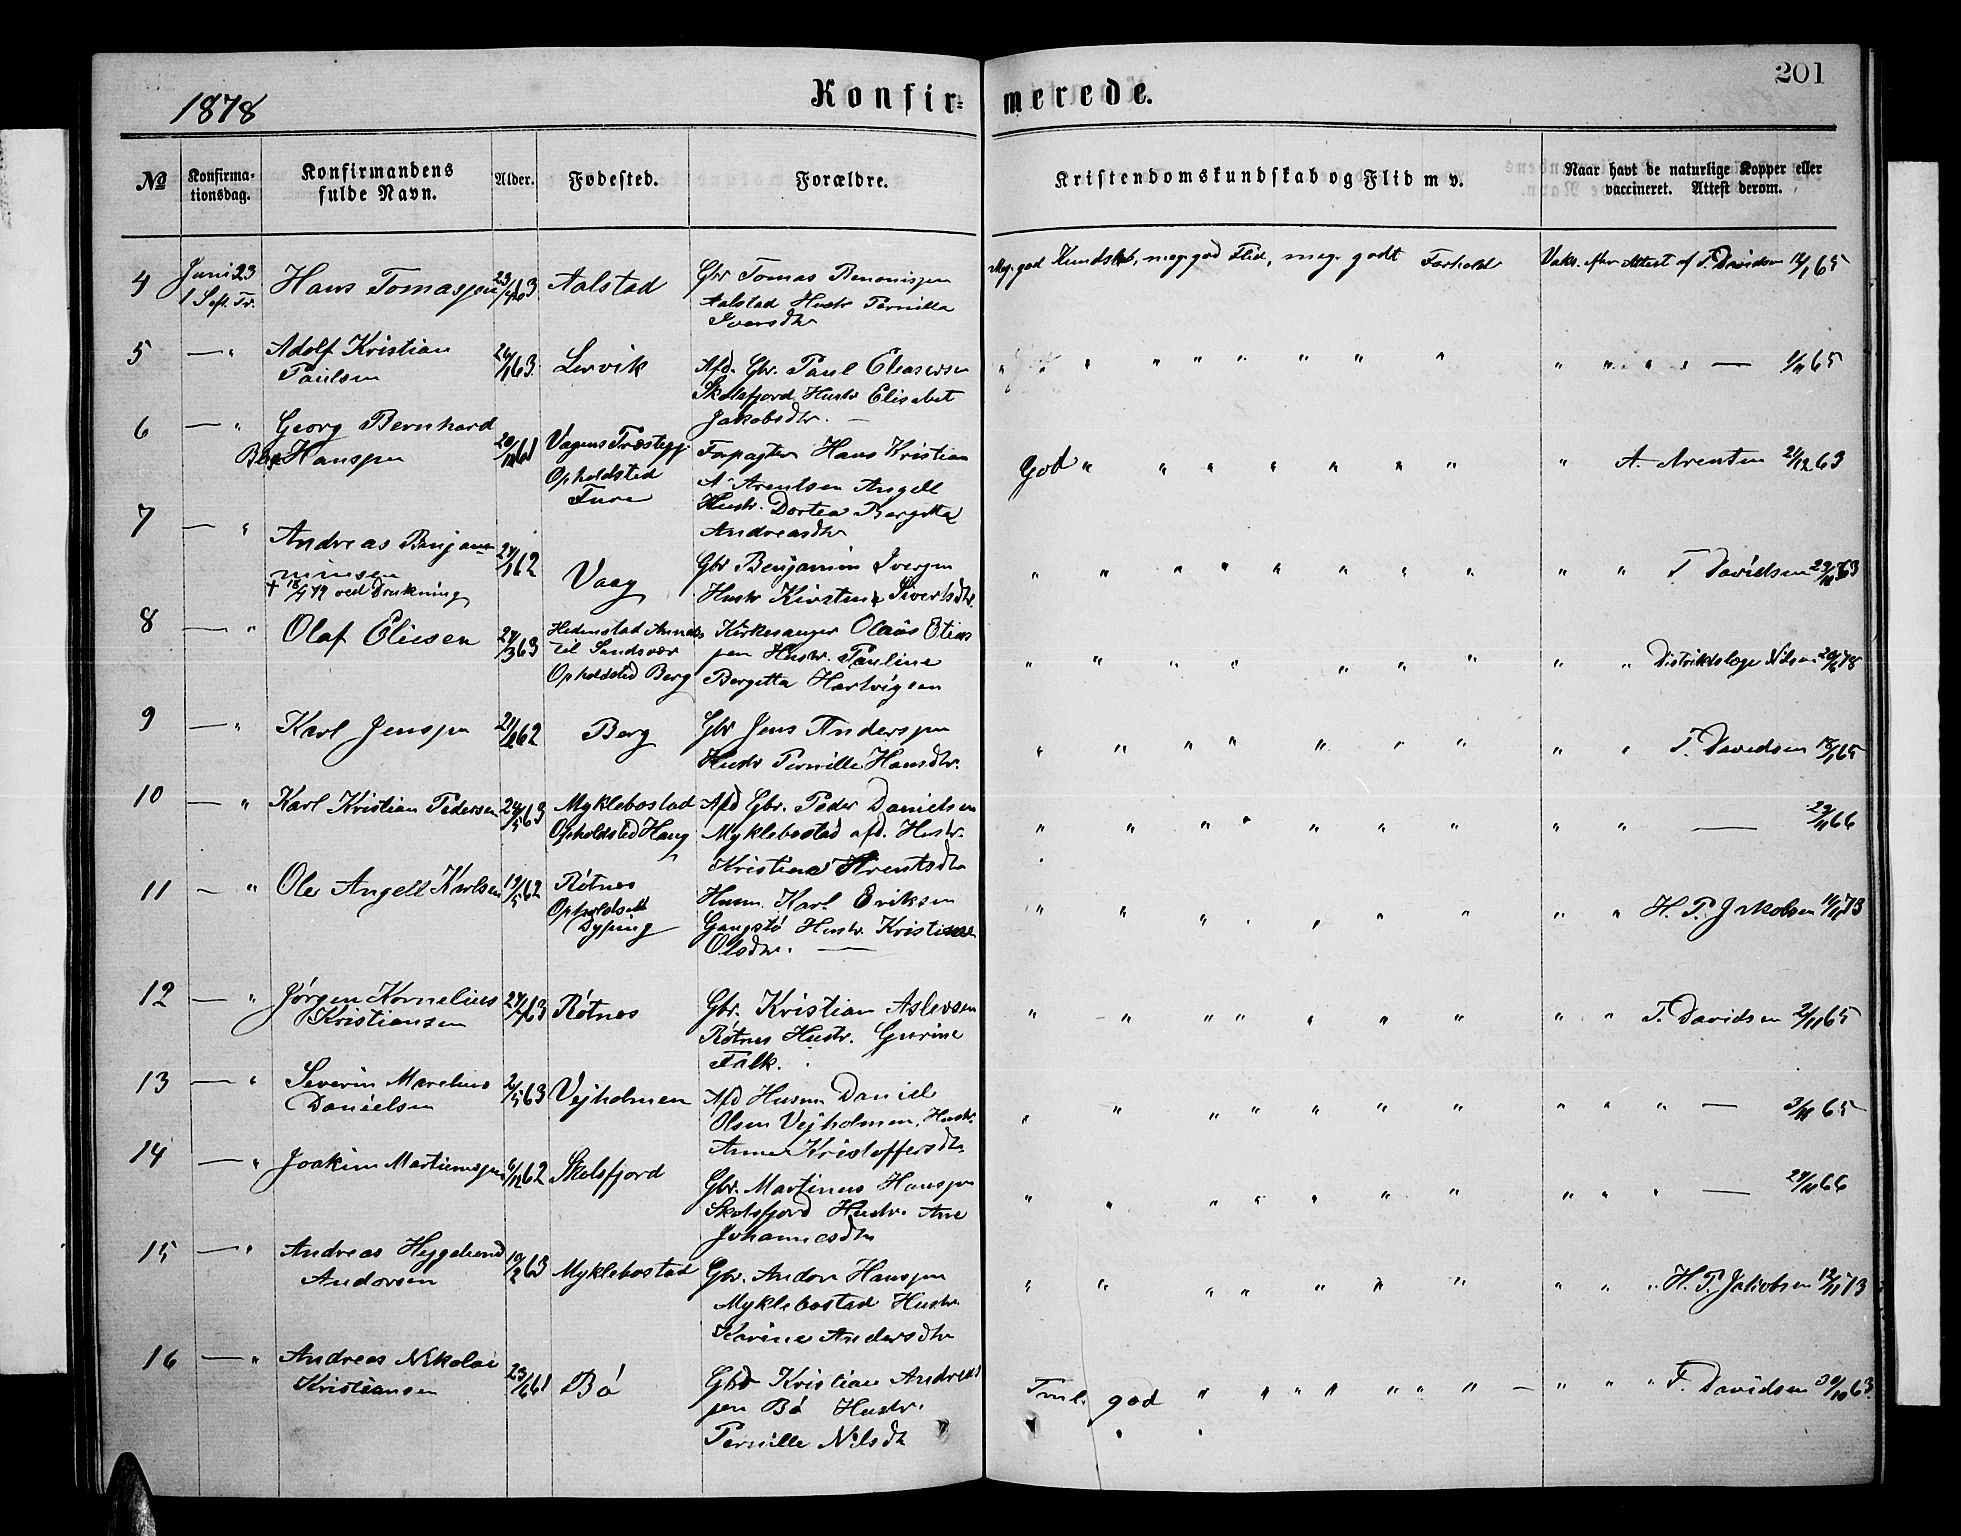 1878
Konfir- merede.
201
No
Konfirma-
tionsdag.
Konfirmandens
fulde Navn.
Alder.
Fødested.
Forældre.
Kristendomskundskab og Flid m v.
Naar havt de naturlige Kopper eller
vaccineret. Attest derom.
4 Juni 23 Hans Tomassen 63 Aalstad Gbr Tomas Benonissen
Aalstad Hustr Pernilla
Iversdtr
Meg. god Kundskb, meg. god Flid, meg. godt Forhold Vaks. efter Attest af T. Davidsen 12/1 65
5 — " Adolf Kristian
Paulsen
63 Lervik Afd. Gbr. Paul Eleasersen
Skotsfjord Hustr Elisabet
Jakobsdtr. —
" " " " " " " " " " " — 65
6 — " Georg Bernhard
Hanssen
61 Vagens Træstegg.
Opholdsted
Fure
Forpagter Hans Kristian
N Arentsen Angell
Hustr. Dortea Bergitta
Andreasdtr
God " " " " " " " " A. Arentsen 21/12 63
7 — " Andreas Benjami-
minsen
+ 18/4 79 ved Drukning
62 Vaag Gbr Benjamin Iversen
Hustr Kirstina Sivertsdtr.
" " " " " " " " " " T Davidsen 63
8 — " Olaf Eliesen 24/3 63 Hedenstad Annex
til Sandsvær
Opholdsted Berg
Kirkesanger Olaus Elias
sen Hustr. Pauline
Bergitta Hartvigsen
" " " " " " " " " Distriktslæge Nilsen 78
9 — " Karl Jenssen 62 Berg Gbr Jens Anderssen
Hustr Pernille Hansdtr.
" " " " " " " " " T. Davidsen 18/1 65
10 — " Karl Kristian Pedersen 24/5 63 Myklebostad
Opholdsted Haug
Afd Gbr. Peder Danielsen
Myklebostad afd. Hustr.
Kristina Arentsdtr
" " " " " " " " " — 66
11 — " Ole Angell Karlsen 19/5 62 Røtnes
Opholdsted
Dyping
Husm. Karl Eriksen
Gangstø Hustr. Kristine
Olsdtr. —
" " " " " " " " H. P. Jakobsen 73
12 — " Jørgen Kornelius
Kristiansen
63 Røtnes Gbr. Kristian Aslersen
Røtnes Hustr. Gurine
Falk.
" " " " " " " " " T. Davidsen 2/11 65
13 — " Severin Marelius
Danielsen
2/5 63 Vejholmen Afd Husm Daniel
Olsen Vejholmen, Hustr.
Anne Kristoffersdtr.
" " " " " " " " " " — 65
14 — " Joakim Martinussen 6/12 62 Skotsfjord Gbr. Martinus Hanssen
Skotsfjord Hustr. Ane
Johannesdtr
" " " " " " " " " " — 66
15 — " Andreas Heggelund
Andorsen
19/2 63 Myklebostad Gbr. Andor Hanssen
Myklebostad Hustr.
Karine Andersdtr
" " " " " " " " " " H. P. Jakobsen 12/11 73
16 — " Andreas Nikolai
Kristiansen
61 Bø Gbr Kristian Andreas
sen Bø Hustr.
Pernille Nilsdtr
Tml. god " " " " " " " — " " " T. Davidsen 30/10 63.